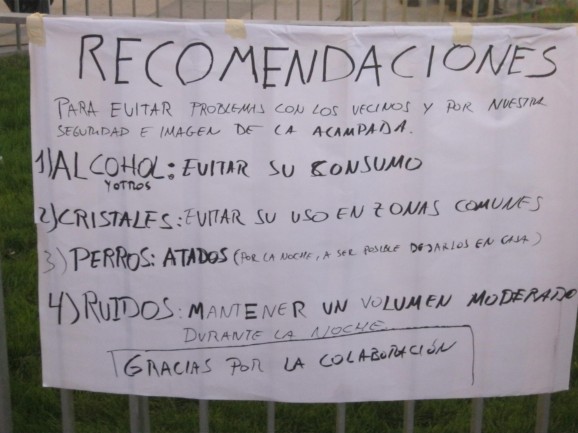 RECOMENDACIONES
PARA EVITAR PROBLEMAS CON LOS VECINOS Y POR NUESTRA
SEGURIDAD E IMAGEN DE LA ACAMPADA.
1) ALCOHOL: EVITAR SU CONSUMO
Y OTROS
2) CRISTALES: EVITAR SU USO EN ZONAS COMUNES
3) PERROS: ATADOS (POR LA NOCHE, A SER POSIBLE DEJARLOS EN CASA)
4) RUIDOS: MANTENER UN VOLUMEN MODERADO
DURANTE LA NOCHE
GRACIAS POR LA COLABORACIÓN